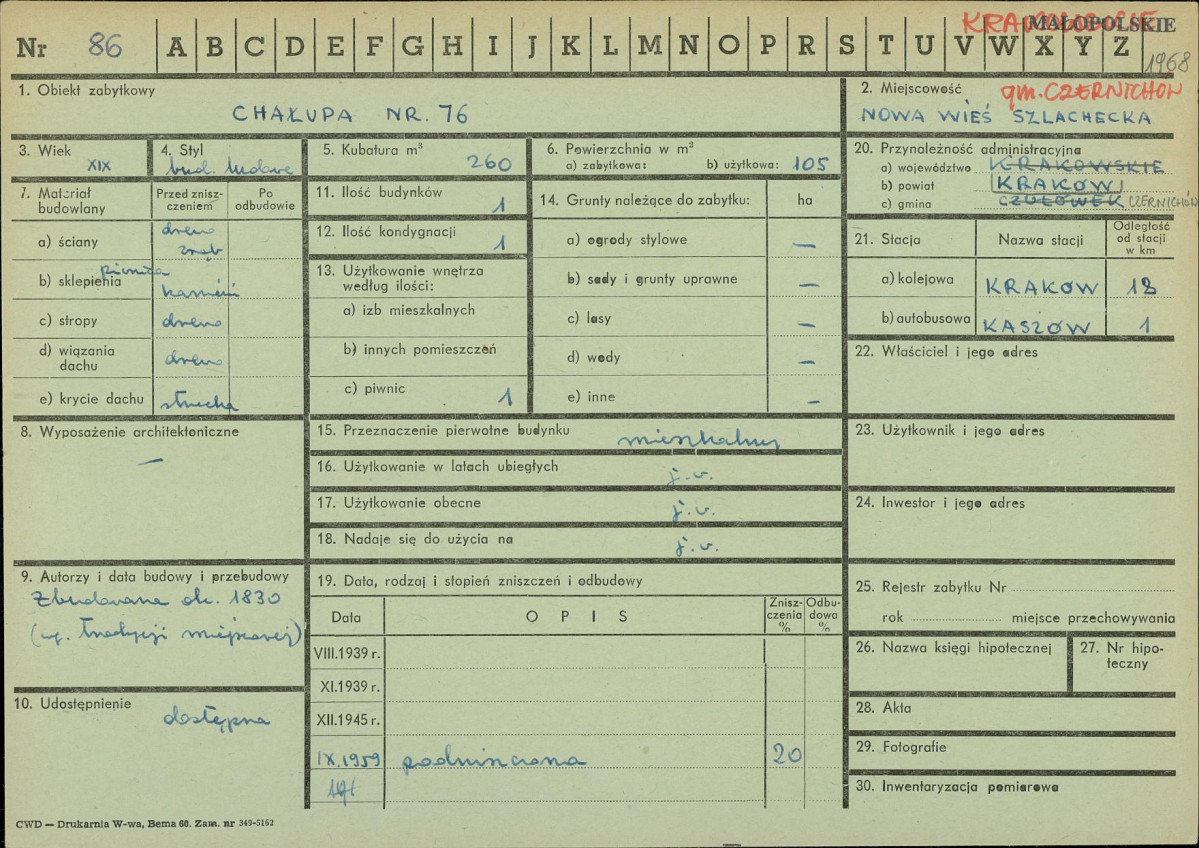 KRAKOWSKIE MAŁOPOLSKIE
Nr 86 A B C D E F G H I J K L M N O P R S T U V W X Y Z
1968
1. Obiekt zabytkowy
CHAŁUPA NR. 76
2. Miejscowość gm. CZERNICHÓW
NOWA WIEŚ SZLACHECKA
3. Wiek
XIX
4. Styl
bud. ludowe
5. Kubatura m³
260
6. Powierzchnia w m²
a) zabytkowa: b) użytkowa: 105
7. Materiał budowlany
Przed zniszczeniem
Po odbudowie
a) ściany
drewno
zrąb
b) sklepienia
piwnica
kamień
c) stropy drewno
d) wiązania dachu drewno
e) krycie dachu strzecha
8. Wyposażenie architektoniczne
—
9. Autorzy i data budowy i przebudowy
Zbudowana ok. 1830
(wg. tradycji miejscowej)
10. Udostępnienie
dostępna
11. Ilość budynków
1
12. Ilość kondygnacji
1
13. Użytkowanie wnętrza według ilości:
a) izb mieszkalnych
b) innych pomieszczeń
c) piwnic 1
14. Grunty należące do zabytku: ha
a) ogrody stylowe —
b) sady i grunty uprawne —
c) lasy —
d) wody —
e) inne —
15. Przeznaczenie pierwotne budynku mieszkalny
16. Użytkowanie w latach ubiegłych j.w.
17. Użytkowanie obecne j.w.
18. Nadaje się do użycia na j.w.
19. Data, rodzaj i stopień zniszczeń i odbudowy
Data O P I S Zniszczenia % Odbudowa %
VIII.1939 r.
XI.1939 r.
XII.1945 r.
IX.1959 podniszczona 20
20. Przynależność administracyjna
a) województwo KRAKOWSKIE
b) powiat KRAKÓW
c) gmina CZUŁÓWEK CZERNICHÓW
21. Stacja Nazwa stacji Odległość od stacji w km
a) kolejowa KRAKÓW 18
b) autobusowa KASZÓW 1
22. Właściciel i jego adres
23. Użytkownik i jego adres
24. Inwestor i jego adres
25. Rejestr zabytku Nr
rok miejsce przechowywania
26. Nazwa księgi hipotecznej
27. Nr hipoteczny
28. Akta
29. Fotografie
30. Inwentaryzacja pomiarowa
CWD — Drukarnia W-wa, Bema 60. Zam. nr 349-5162